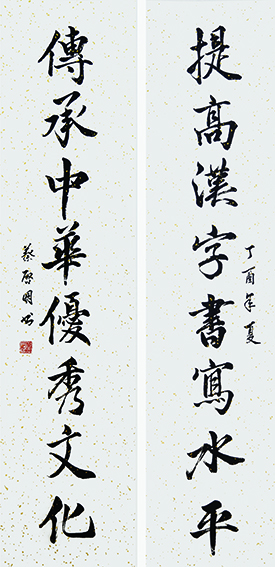 提高漢字書寫水平
丁酉年夏
傳承中華優秀文化
蔡啓明書